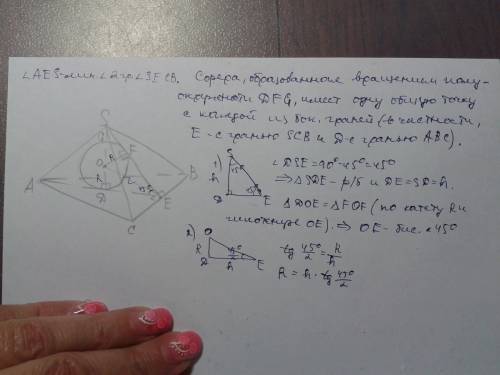 ∠AES-лин.∠2гр∠SECB. Сфера, образованная вращением полу-
окружности DFG, имеет одну общую точку
с каждой из бок. граней (в частности,
E - с гранью SCB и D - с гранью ABC).
S
F
O
R
R
A
D
45°
B
E
C
1)
S
h
45°
D
45°
E
∠DSE=90°-45°=45°
⇒ ΔSDE - р/б и DE=SD=h.
ΔDOE=ΔFOE (по катету R и
гипотенузе OE). ⇒ OE - бис. ∠45°
2)
O
R
D
h
E
tg 45°/2 = R/h
R = h · tg 45°/2